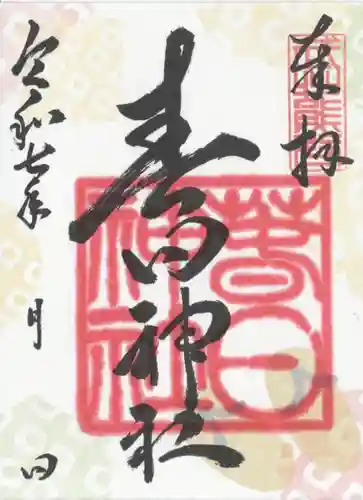 奉拝
春日神社
春日神社
令和七年 月 日